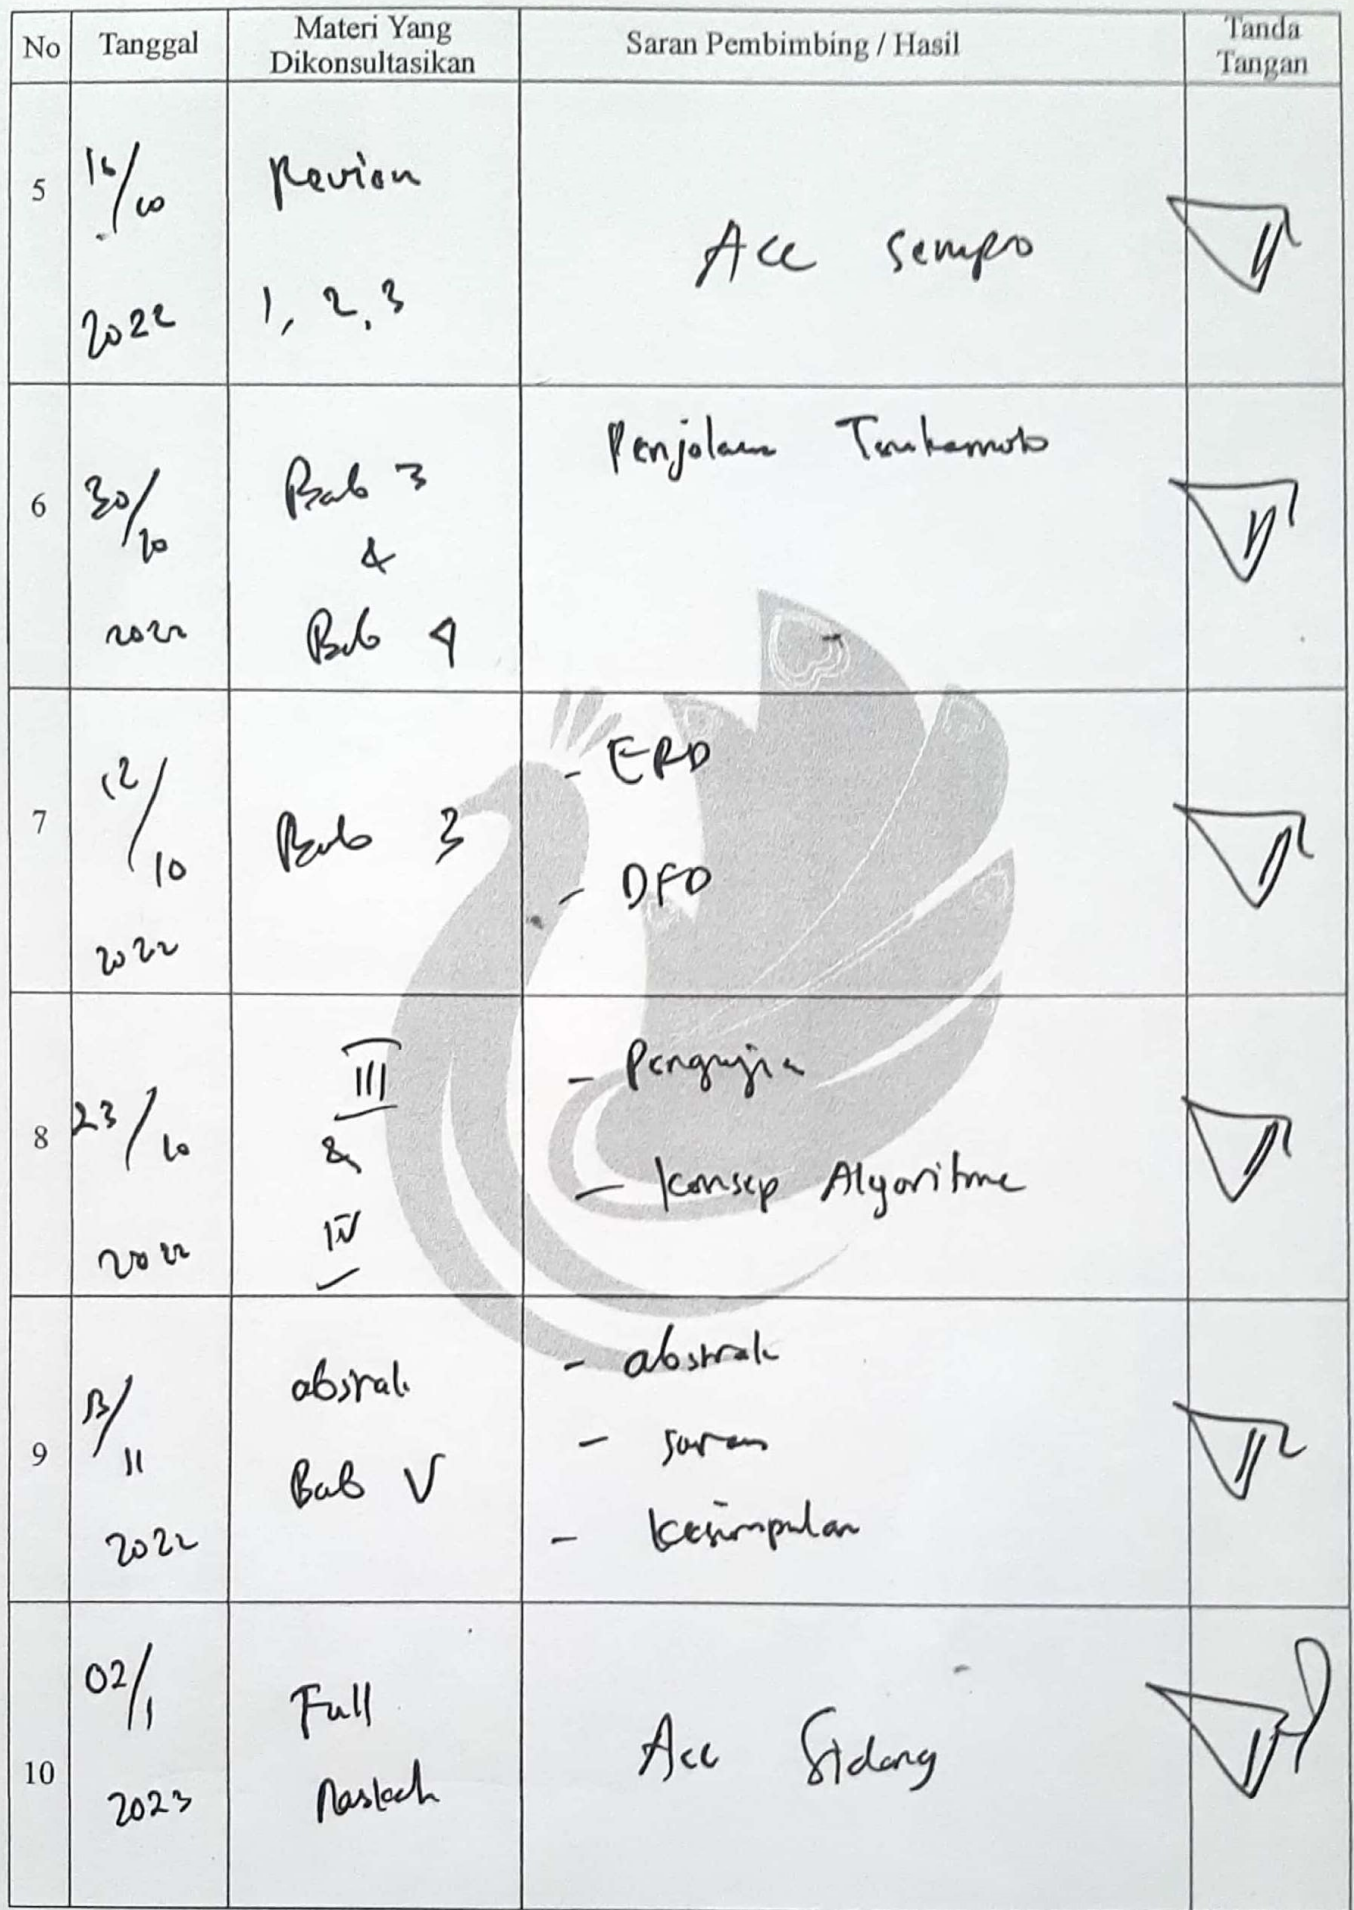 No Tanggal Materi Yang Dikonsultasikan Saran Pembimbing / Hasil Tanda Tangan
5 16/10 2022 Revisi 1, 2, 3 Acc Sempro
6 30/10 2022 Bab 3 & Bab 4 Penjelasan Tsukamoto
7 12/10 2022 Bab 3
- ERD
- DFD
8 23/10 2022 III & IV
- Pengujian
- Konsep Algoritme
9 13/11 2022 abstrak Bab V
- abstrak
- saran
- kesimpulan
10 02/1 2023 Full Naskah Acc Sidang